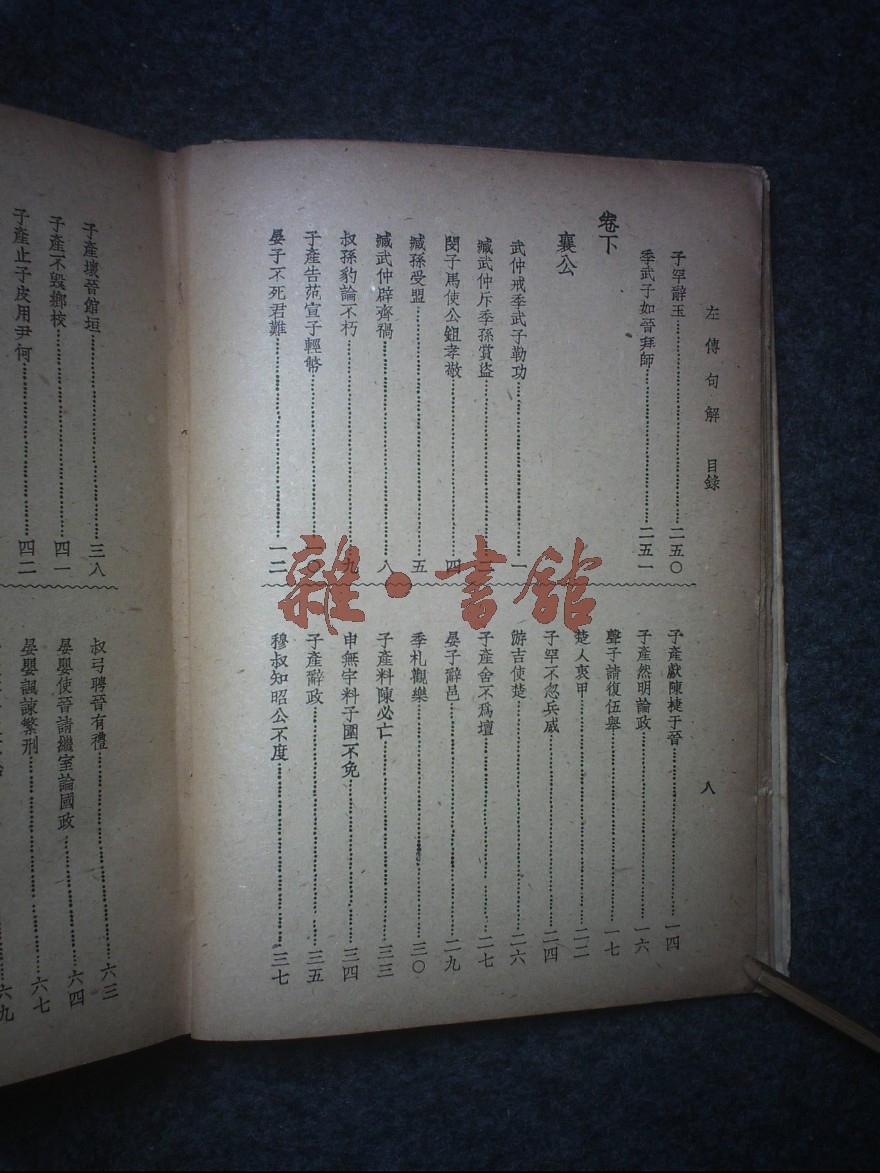 左傳句解 目錄
八
子罕辭玉……二五〇
季武子如晉拜師……二五一
卷下
襄公
武仲戒季武子勒功……一
臧武仲斥季孫賞盜……
閔子馬使公鉏孝敬……四
臧孫受盟……五
臧武仲辟齊禍……八
叔孫豹論不朽……九
子產告范宣子輕幣……一〇
晏子不死君難……一二
子產獻陳捷于晉……一四
子產然明論政……一六
聲子請復伍舉……一七
楚人衷甲……二二
子罕不忍兵威……二四
游吉使楚……二六
子產舍不為壇……二七
晏子辭邑……二九
季札觀樂……三〇
子產料陳必亡……三三
申無宇料子圍不免……三四
子產辭政……三五
穆叔知昭公不度……三七
子產壞晉館垣……三八
子產不毀鄉校……四一
子產止子皮用尹何……四二
叔弓聘晉有禮……六三
晏嬰使晉請繼室論國政……六四
晏嬰諷諫繁刑……六七
六九
雜·書館